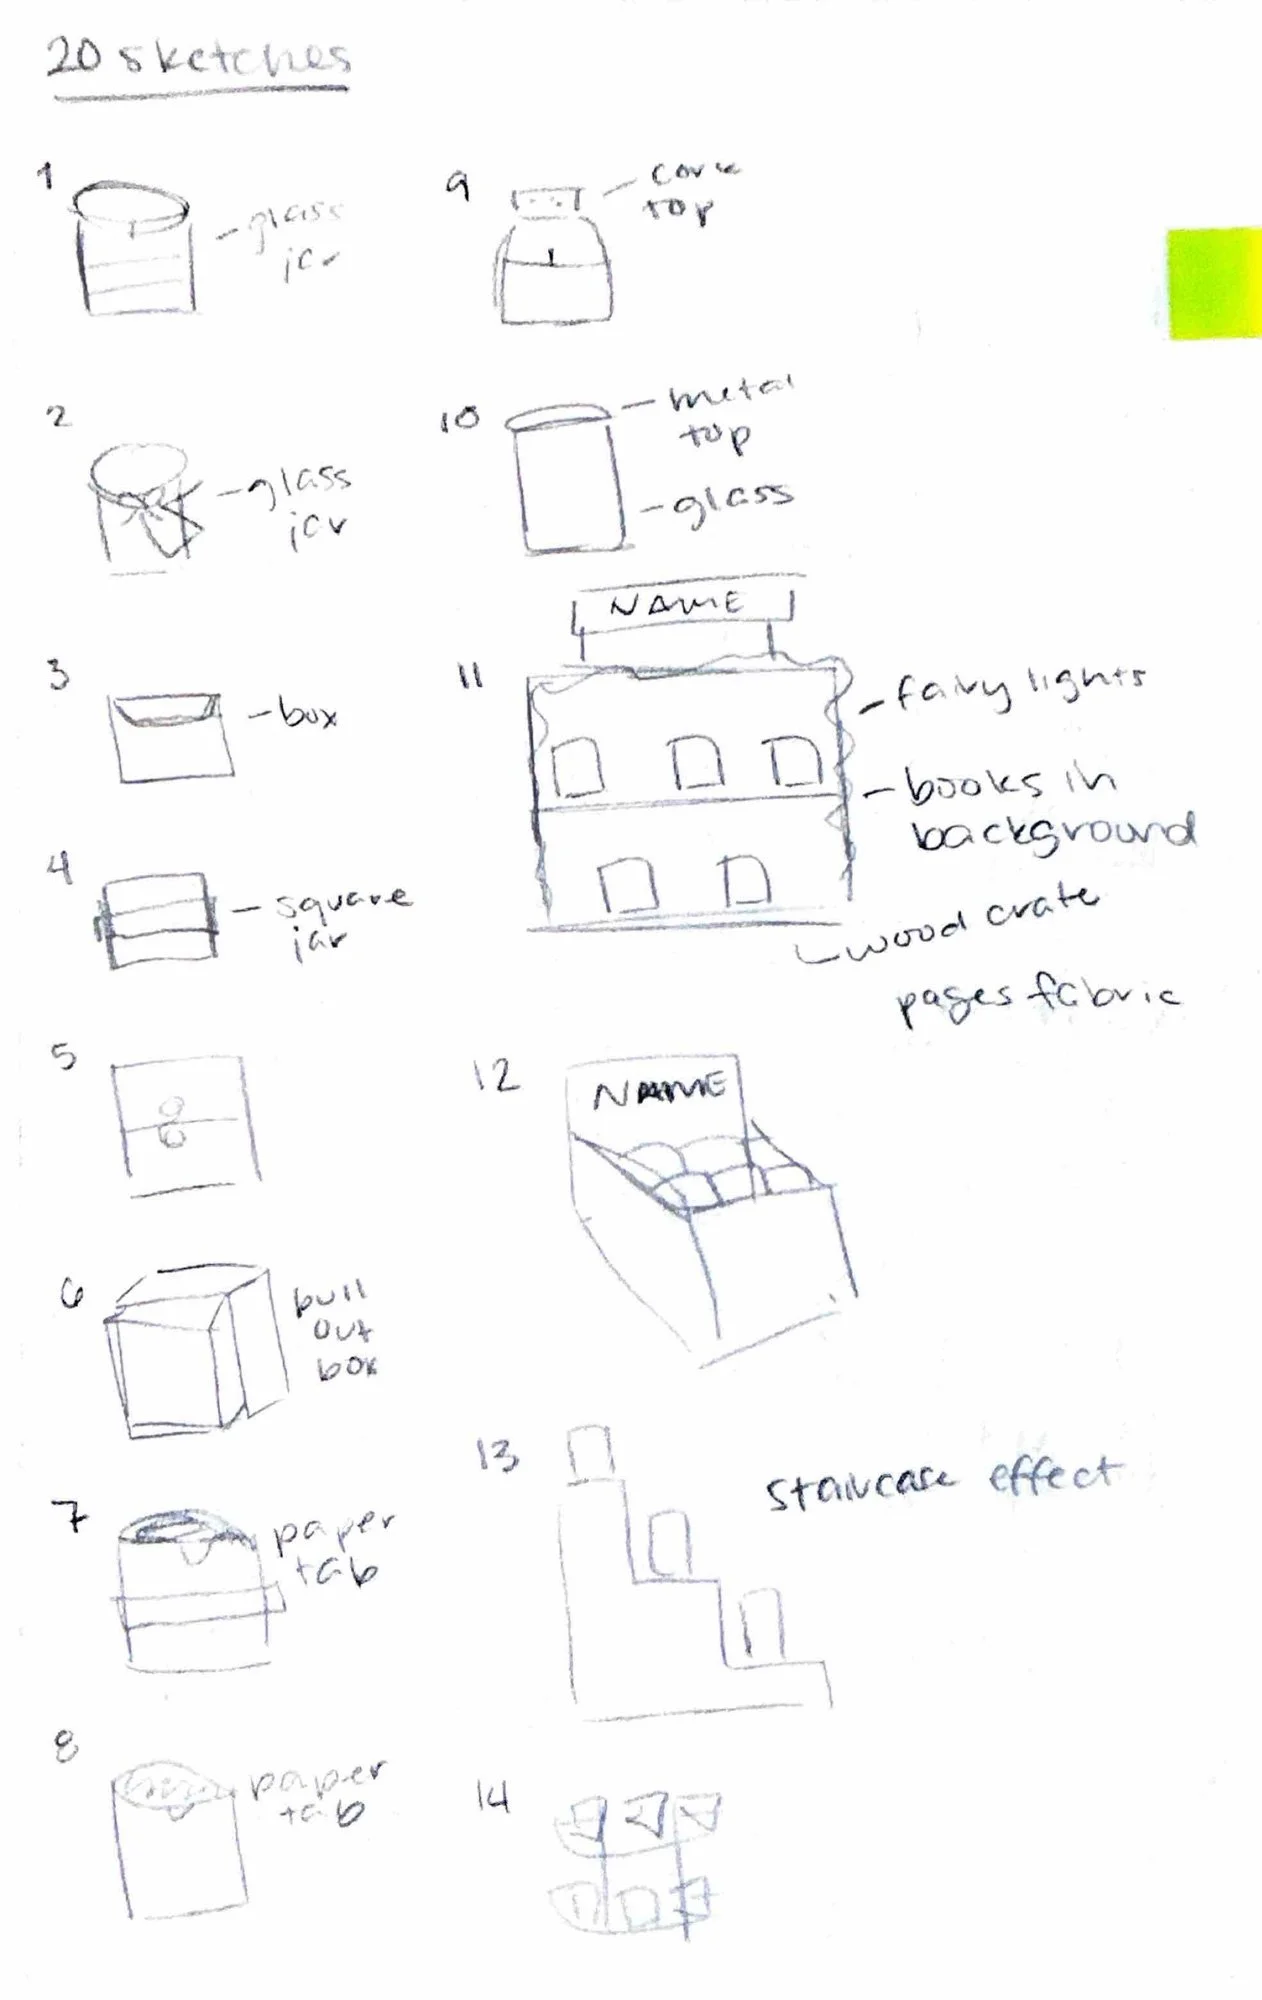 20 sketches
1
glass
jar
2
glass
jar
3
box
4
square
jar
5
6
pull
out
box
7
paper
tab
8
paper
tab
9
cork
top
10
metal
top
glass
11
NAME
fairy lights
books in
background
wood crate
pages fabric
12
NAME
13
staircase effect
14